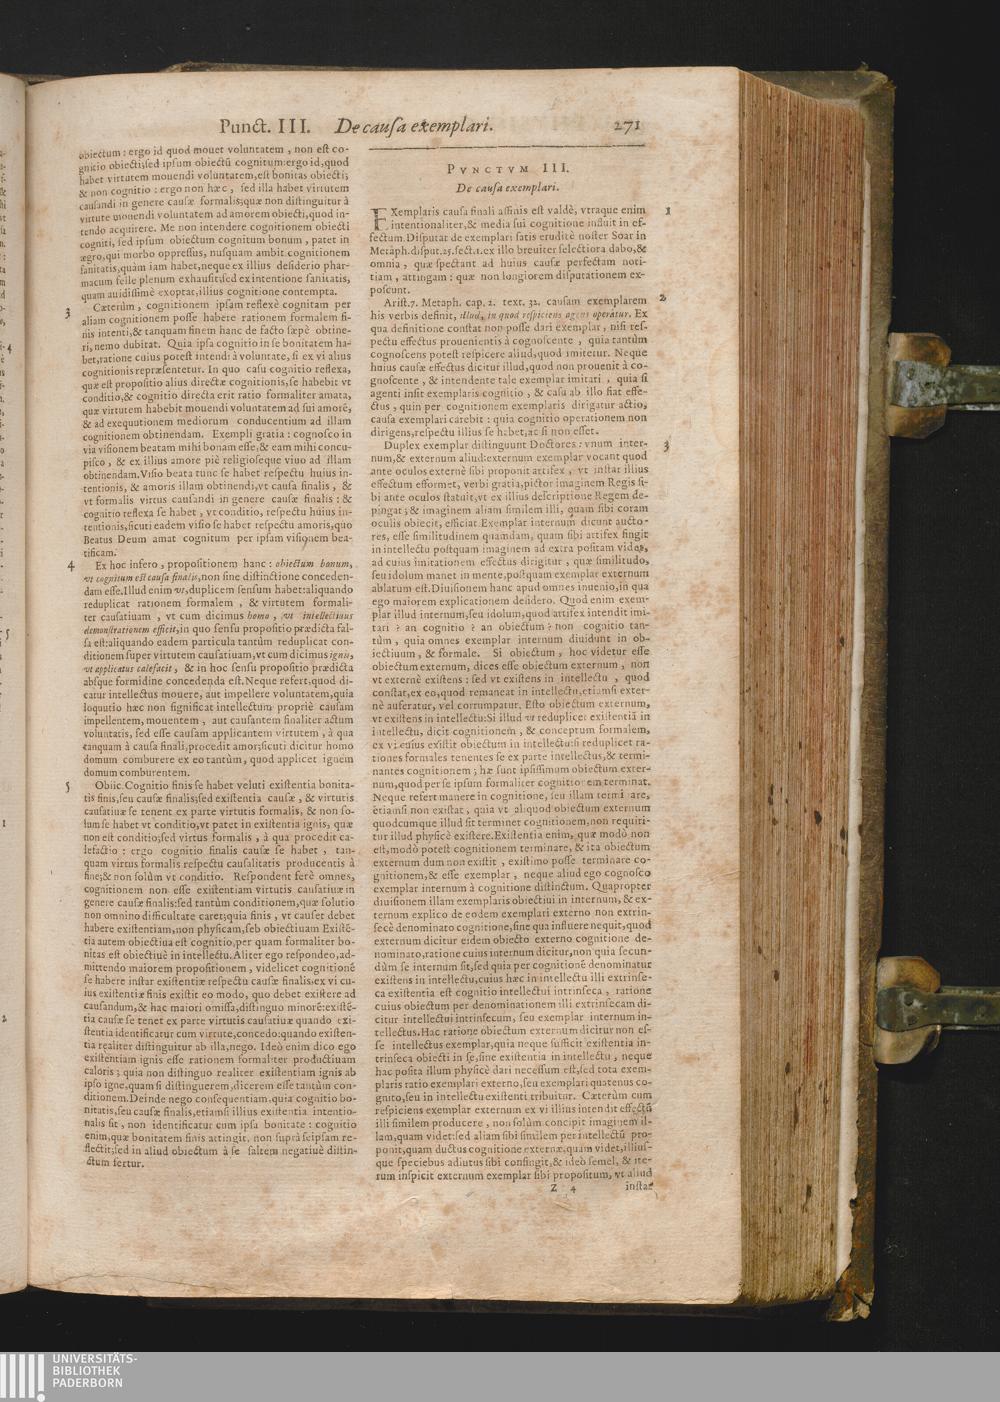 Punct. III. De causa exemplari. 271
obiectum : ergo id quod mouet voluntatem , non est co-
gnitio obiecti;sed ipsum obiectū cognitum:ergo id,quod
habet virtutem mouendi voluntatem,est bonitas obiecti;
& non cognitio : ergo non hæc , sed illa habet virtutem
causandi in genere causæ formalis;quæ non distinguitur à
virtute mouendi voluntatem ad amorem obiecti,quod in-
tendo acquirere. Me non intendere cognitionem obiecti
cogniti, sed ipsum obiectum cognitum bonum , patet in
ægro,qui morbo oppressus, nusquam ambit cognitionem
sanitatis,quàm iam habet,neque ex illius desiderio phar-
macum felle plenum exhausit;sed ex intentione sanitatis,
quam auidissimè exoptat,illius cognitione contempta.
3 Cæterùm , cognitionem ipsam reflexè cognitam per
aliam cognitionem posse habere rationem formalem fi-
nis intenti,& tanquam finem hanc de facto sæpè obtine-
ri, nemo dubitat. Quia ipsa cognitio in se bonitatem ha-
bet,ratione cuius potest intendi à voluntate, si ex vi alius
cognitionis repræsentetur. In quo casu cognitio reflexa,
quæ est propositio alius directæ cognitionis,se habebit vt
conditio,& cognitio directa erit ratio formaliter amata,
quæ virtutem habebit mouendi voluntatem ad sui amorē,
& ad exequutionem mediorum conducentium ad illam
cognitionem obtinendam. Exempli gratia : cognosco in
via visionem beatam mihi bonam esse,& eam mihi concu-
pisco , & ex illius amore piè religioseque viuo ad illam
obtinendam.Visio beata tunc se habet respectu huius in-
tentionis, & amoris illam obtinendi,vt causa finalis , &
vt formalis virtus causandi in genere causæ finalis : &
cognitio reflexa se habet , vt conditio, respectu huius in-
tentionis,sicuti eadem visio se habet respectu amoris,quo
Beatus Deum amat cognitum per ipsam visionem bea-
tificam.
4 Ex hoc infero , propositionem hanc : obiectum bonum,
vt cognitum est causa finalis,non sine distinctione conceden-
dam esse.Illud enim vt,duplicem sensum habet:aliquando
reduplicat rationem formalem , & virtutem formali-
ter causatiuam , vt cum dicimus homo , vt intellectiuus
demonstrationem efficit,in quo sensu propositio prædicta fal-
sa est:aliquando eadem particula tantùm reduplicat con-
ditionem super virtutem causatiuam,vt cum dicimus ignis,
vt applicatus calefacit , & in hoc sensu propositio prædicta
absque formidine concedenda est.Neque refert,quod di-
catur intellectus mouere, aut impellere voluntatem,quia
loquutio hæc non significat intellectum propriè causam
impellentem,mouentem , aut causantem finaliter actum
voluntatis, sed esse causam applicantem virtutem , à qua
tanquam à causa finali,procedit amor;sicuti dicitur homo
domum comburere ex eo tantùm, quod applicet ignem
domum comburentem.
5 Obiic.Cognitio finis se habet veluti existentia bonita-
tis finis,seu causæ finalis;sed existentia causæ , & virtutis
causatiuæ se tenent ex parte virtutis formalis, & non so-
lum se habet vt conditio,vt patet in existentia ignis, quæ
non est conditio;sed virtus formalis , à qua procedit ca-
lefactio : ergo cognitio finalis causæ se habet , tan-
quam virtus formalis respectu causalitatis producentis à
fine;& non solùm vt conditio. Respondent ferè omnes,
cognitionem non esse existentiam virtutis causatiuæ in
genere causæ finalis:sed tantùm conditionem,quæ solutio
non omnino difficultate caret;quia finis , vt causet debet
habere existentiam,non physicam,seb obiectiuam Existē-
tia autem obiectiua est cognitio,per quam formaliter bo-
nitas est obiectiuè in intellectu.Aliter ego respondeo,ad-
mittendo maiorem propositionem , videlicet cognitionē
se habere instar existentiæ respectu causæ finalis:ex vi cu-
ius existentiæ finis existit eo modo, quo debet existere ad
causandum,& hac maiori omissa,distinguo minorē:existē-
tia causæ se tenet ex parte virtutis causatiuæ quando exi-
stentia identificatur cum virtute,concedo:quando existen-
tia realiter distinguitur ab illa,nego. Ideò enim dico ego
existentiam ignis esse rationem formaliter productiuam
caloris ; quia non distinguo realiter existentiam ignis ab
ipso igne,quam si distinguerem,dicerem esse tantùm con-
ditionem.Deinde nego consequentiam.quia cognitio bo-
nitatis,seu causæ finalis,etiamsi illius existentia intentio-
nalis sit , non identificatur cum ipsa bonitate : cognitio
enim,quæ bonitatem finis attingit, non suprà seipsam re-
flectit;sed in aliud obiectum à se saltem negatiuè distin-
ctum fertur.
PVNCTVM III.
De causa exemplari.
EXemplaris causa finali affinis est valdè, vtraque enim 1
intentionaliter,& media sui cognitione influit in ef-
fectum.Disputat de exemplari satis eruditè noster Soar in
Metaph.disput.25.sect.1.ex illo breuiter selectiora dabo,&
omnia , quæ spectant ad huius causæ perfectam noti-
tiam , attingam : quæ non longiorem disputationem ex-
poscunt.
Arist.7. Metaph. cap. 2. text. 32. causam exemplarem 2
his verbis definit, illud, in quod respiciens agens operatur. Ex
qua definitione constat non posse dari exemplar , nisi res-
pectu effectus prouenientis à cognoscente , quia tantùm
cognoscens potest respicere aliud,quod imitetur. Neque
huius causæ effectus dicitur illud,quod non prouenit à co-
gnoscente , & intendente tale exemplar imitari , quia si
agenti insit exemplaris cognitio , & casu ab illo fiat effe-
ctus , quin per cognitionem exemplaris dirigatur actio,
causa exemplari carebit : quia cognitio operationem non
dirigens,respectu illius se habet,ac si non esset.
Duplex exemplar distinguunt Doctores : vnum inter- 3
num,& externum aliud:externum exemplar vocant quod
ante oculos externè sibi proponit artifex , vt instar illius
effectum efformet, verbi gratia,pictor imaginem Regis si-
bi ante oculos statuit,vt ex illius descriptione Regem de-
pingat ; & imaginem aliam similem illi, quam sibi coram
oculis obiecit, efficiat.Exemplar internum dicunt aucto-
res, esse similitudinem quamdam, quam sibi artifex fingit
in intellectu postquam imaginem ad extra positam videt,
ad cuius imitationem effectus dirigitur , quæ similitudo,
seu idolum manet in mente,postquam exemplar externum
ablatum est.Diuisionem hanc apud omnes inuenio,in qua
ego maiorem explicationem desidero. Quod enim exem-
plar illud internum,seu idolum,quod artifex intendit imi-
tari ? an cognitio ? an obiectum ? non cognitio tan-
tùm , quia omnes exemplar internum diuidunt in ob-
iectiuum , & formale. Si obiectum , hoc videtur esse
obiectum externum, dices esse obiectum externum , non
vt externè existens : sed vt existens in intellectu , quod
constat,ex eo,quod remaneat in intellectu,etiamsi exter-
nè auferatur, vel corrumpatur. Esto obiectum externum,
vt existens in intellectu:Si illud vt reduplicet existentiā in
intellectu, dicit cognitionem , & conceptum formalem,
ex vi cuius existit obiectum in intellectu:si reduplicet ra-
tiones formales tenentes se ex parte intellectus,& termi-
nantes cognitionem ; hæ sunt ipsissimum obiectum exter-
num,quod per se ipsum formaliter cognitionem terminat.
Neque refert manere in cognitione, seu illam terminare,
etiamsi non existat , quia vt aliquod obiectum externum
quodcumque illud sit terminet cognitionem,non requiri-
tur illud physicè existere.Existentia enim, quæ modò non
est,modò potest cognitionem terminare, & ita obiectum
externum dum non existit , existimo posse terminare co-
gnitionem,& esse exemplar , neque aliud ego cognosco
exemplar internum à cognitione distinctum. Quapropter
diuisionem illam exemplaris obiectiui in internum, & ex-
ternum explico de eodem exemplari externo non extrin-
secè denominato cognitione,sine qua influere nequit,quod
externum dicitur eidem obiecto externo cognitione de-
nominato,ratione cuius internum dicitur,non quia secun-
dùm se internum sit,sed quia per cognitionē denominatur
existens in intellectu,cuius hæc in intellectu illi extrinse-
ca existentia est cognitio intellectui intrinseca , ratione
cuius obiectum per denominationem illi extrinsecam di-
citur intellectui intrinsecum, seu exemplar internum in-
tellectus.Hac ratione obiectum externum dicitur non es-
se intellectus exemplar,quia neque sufficit existentia in-
trinseca obiecti in se,sine existentia in intellectu , neque
hac posita illum physicè dari necessum est,sed tota exem-
plaris ratio exemplari externo,seu exemplari quatenus co-
gnito,seu in intellectu existenti tribuitur. Cæterùm cum
respiciens exemplar externum ex vi illius intendit effectū
illi similem producere , non solùm concipit imaginem il-
lam,quam videt:sed aliam sibi similem per intellectū pro-
ponit,quam ductus cognitione externæ,quam videt,illius-
que speciebus adiutus sibi confingit,& ideò semel, & ite-
rum inspicit externum exemplar sibi propositum, vt aliud
Z 4 instar
UNIVERSITÄTS-
BIBLIOTHEK
PADERBORN